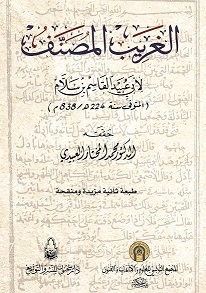 الغريب المصنف
لأبي عبيد القاسم بن سلام
(المتوفى سنة 224 ه/838 م)
حققه
الدكتور محمد المختار العبيدي
طبعة ثانية مزيدة ومنقحة
المجمع التونسي للعلوم والآداب والفنون
دار سحنون للنشر والتوزيع